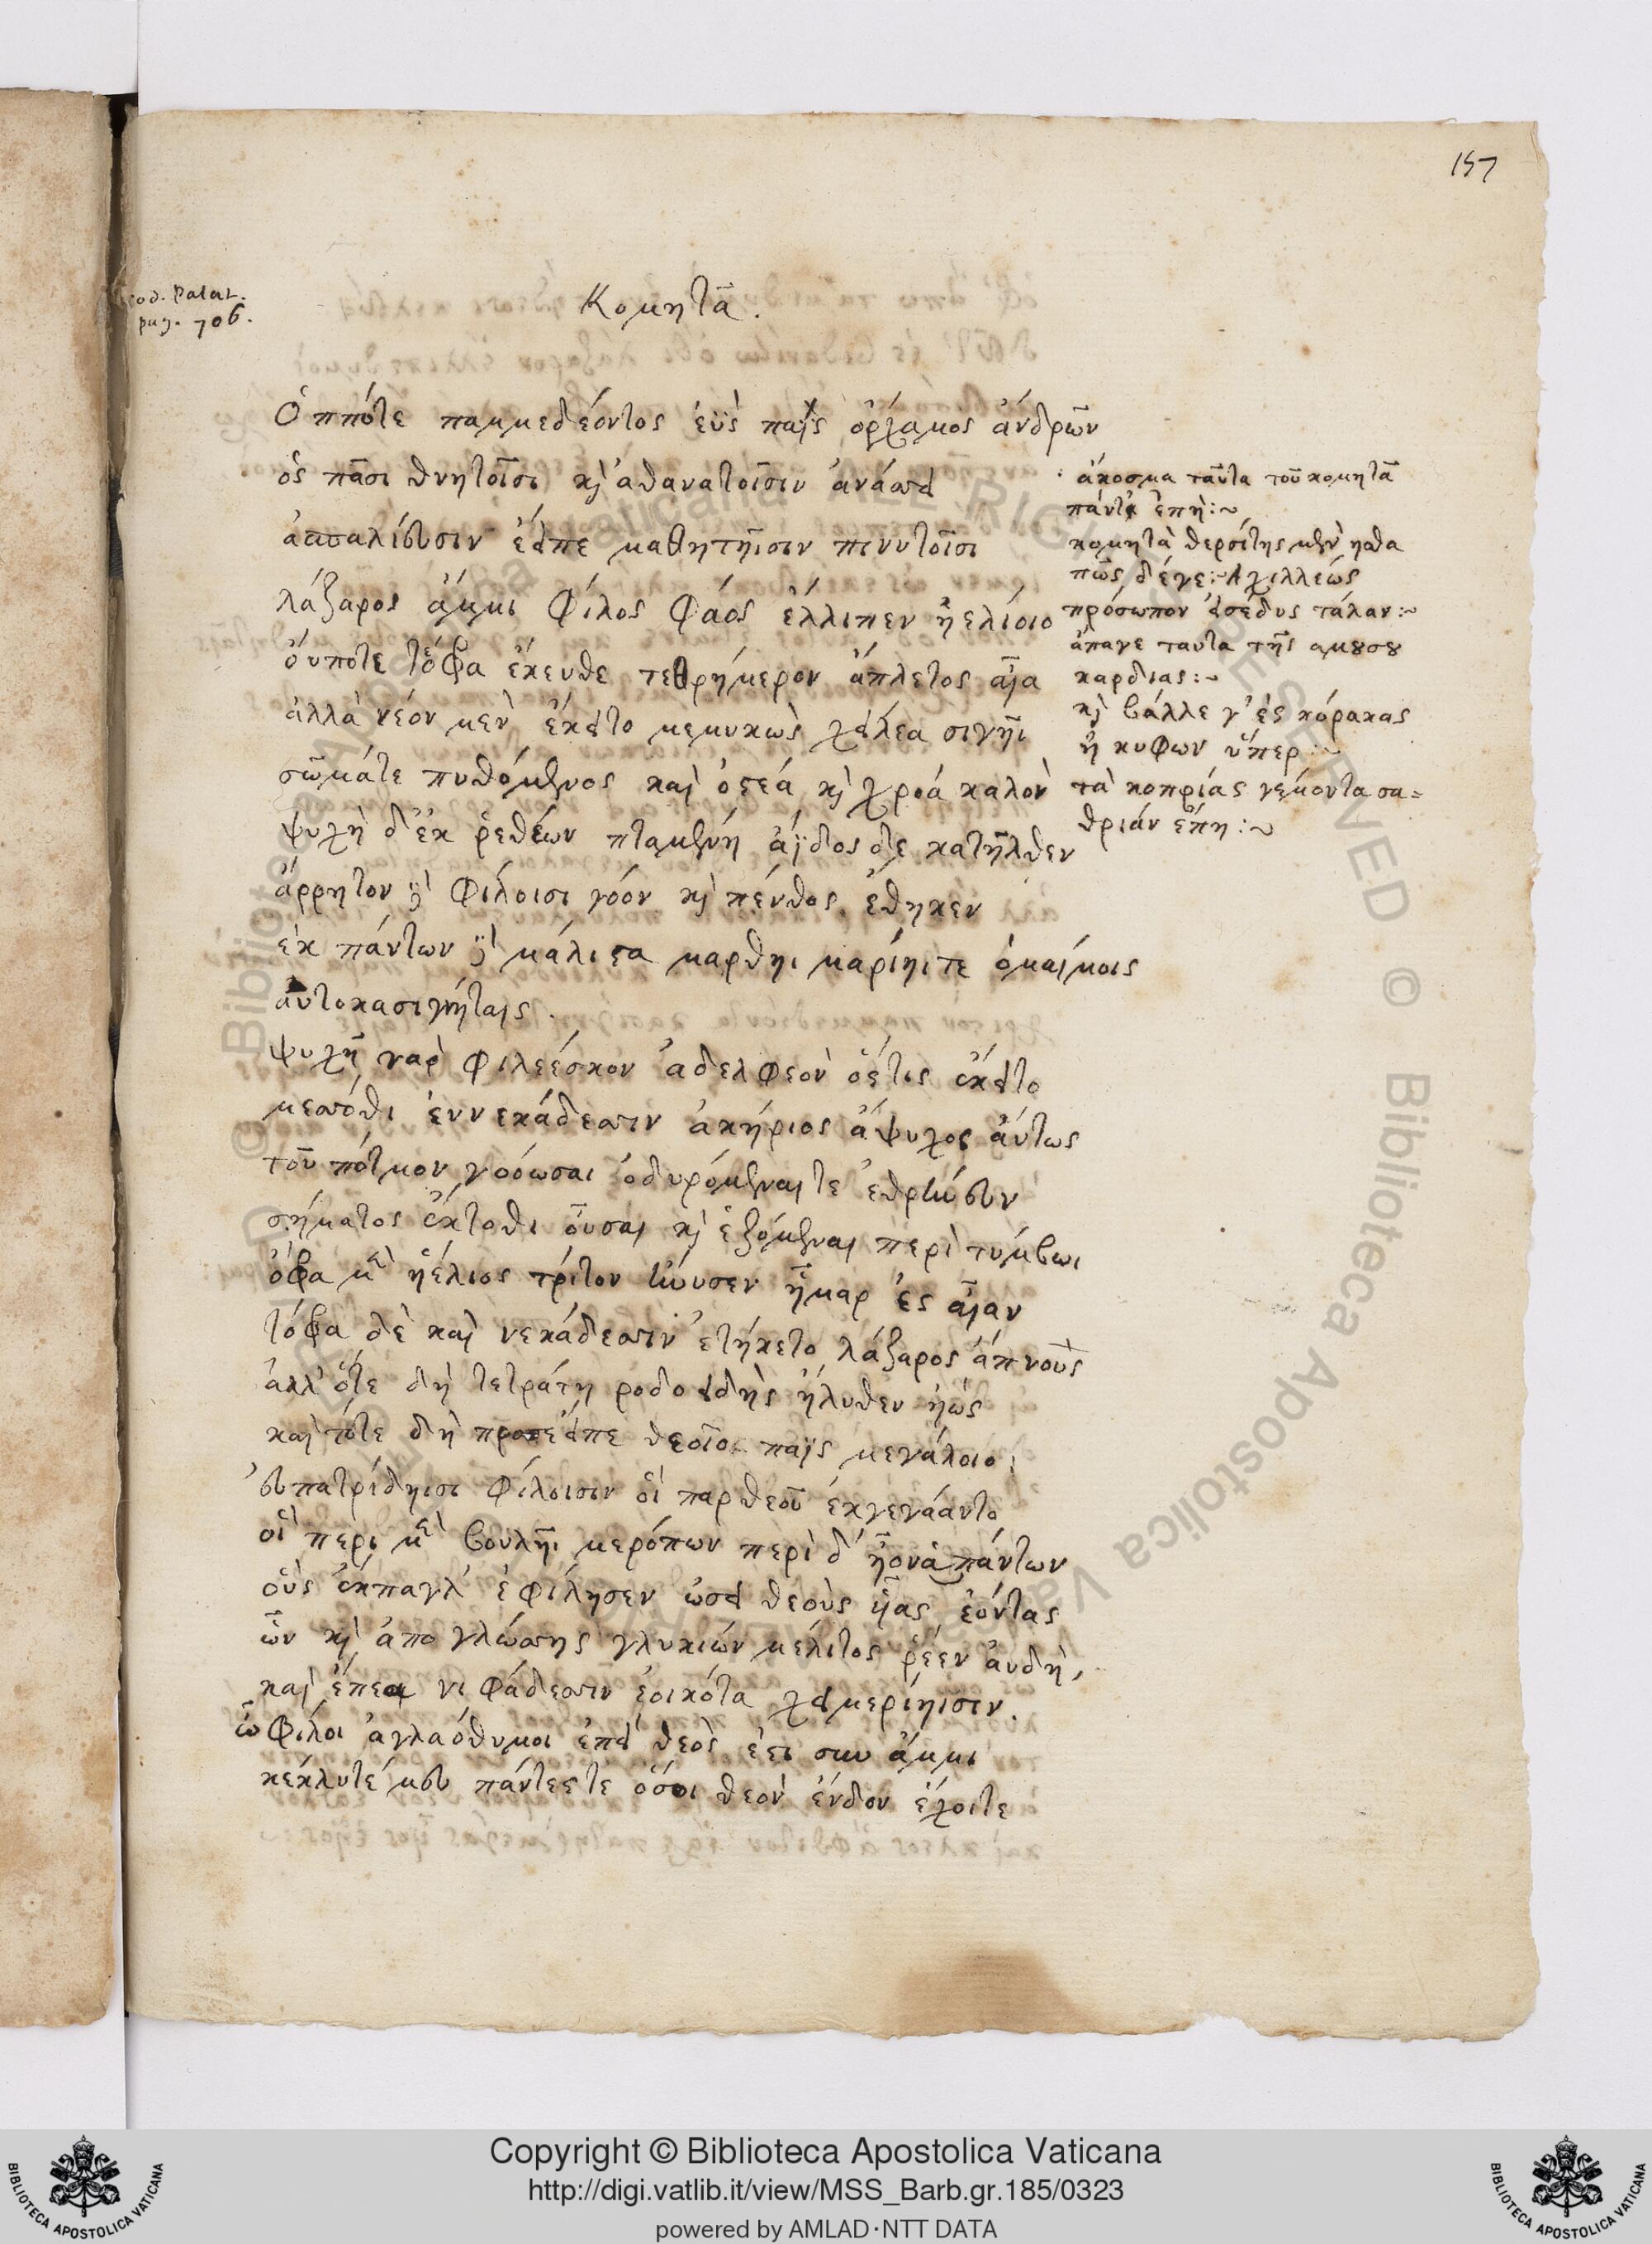 157
cod. Palat.
pag. 706.
Κομητᾶ.
Ὁππότε παμμεδέοντος ἐῢς παῒς ὄρχαμος ἀνδρῶν
ὃς πᾶσι θνητοῖσι κὶ ἀθανατοῖσιν ἀνάσσει
ἀσπαλιεῦσιν ἔειπε μαθητῆισιν πινυτοῖσι
λάζαρος ἄμμι φίλος φάος ἔλλιπεν ἠελίοιο
οὔποτε τόφρα ἔκευθε τετρήμερον ἄπλετος αἶα
ἀλλὰ νέον μὲν ἔκειτο μεμυκὼς χείλεα σιγῆι
σῶμάτε πυθόμενος καὶ ὀστέα κὶ χρόα καλὸν
ψυχὴ δ' ἐκ ῥεθέων πταμένη ἄϊδος δε κατῆλθεν
ἄρρητον δὲ φίλοισι γόον κὶ πένθος ἔθηκεν
ἐκ πάντων δὲ μάλιστα μαρθηι μαρίηι τε ὁμαίμοις
αὐτοκασιγνήταις.
ψυχῆ γαρ φιλεέσκον ἀδελφεὸν ὅστις ἔκειτο
μεσσόθι ἐννεκάδεσσιν ἀκήριος ἄψυχος αὔτως
τοῦ πότμον γοόωσαι ὀδυρόμεναι τε ἐθρήνευν
σήματος ἔκτοθι οὖσαι κὶ ἑζόμεναι περὶ τύμβωι
ὄφρα μὲν ἠέλιος τρίτον ἤνυσεν ἦμαρ ἐς αἶαν
τόφρα δὲ καὶ νεκάδεσσιν ἐτήκετο λάζαρος ἄπνους
ἀλλ' ὅτε δὴ τετράτη ροδοειδὴς ἤλυθεν ἠὼς
καὶ τότε δὴ προσέειπε θεοῖο παῒς μεγάλοιο
εὐπατρίδηισι φίλοισιν οἳ παρ θεοῦ ἐκγεγάαντο
οἳ περι μὲν βουλῆι μερόπων περὶ δ' ἠορέα πάντων
οὓς ἔκπαγλ' ἐφίλησεν ὡσεὶ θεοὺς ἧας ἐόντας
ὧν κὶ ἀπο γλώσσης γλυκιών μέλιτος ῥέεν αὐδὴ,
καὶ ἔπεα νιφάδεσσιν ἐοικότα χειμερίηισιν.
ὦ φίλοι ἀγλαόθυμοι ἐπεὶ θεός ἐστι συν ἄμμι
κέκλυτέ μευ πάντες τε ὅσοι θεὸν ἔνδον ἔχοιτε
ἄκοσμα ταῦτα τοῦ κομητᾶ
πάντα ἔπη:~
κομητὰ θερσίτης μὲν ησθα
πῶς δέγε:~Αχιλλέως
πρόσωπον εἰσέδυς τάλαν:~
ἄπαγε ταυτα τῆς αμούσου
καρδίας:~
κὶ βάλλε γ' ἐς κόρακας
ἢ κυφων ὕπερ:~
τὰ κοπρίας γέμοντα σα=
θριάν ἔπη:~
Copyright © Biblioteca Apostolica Vaticana
http://digi.vatlib.it/view/MSS_Barb.gr.185/0323
powered by AMLAD·NTT DATA
BIBLIOTECA APOSTOLICA VATICANA
BIBLIOTECA APOSTOLICA VATICANA